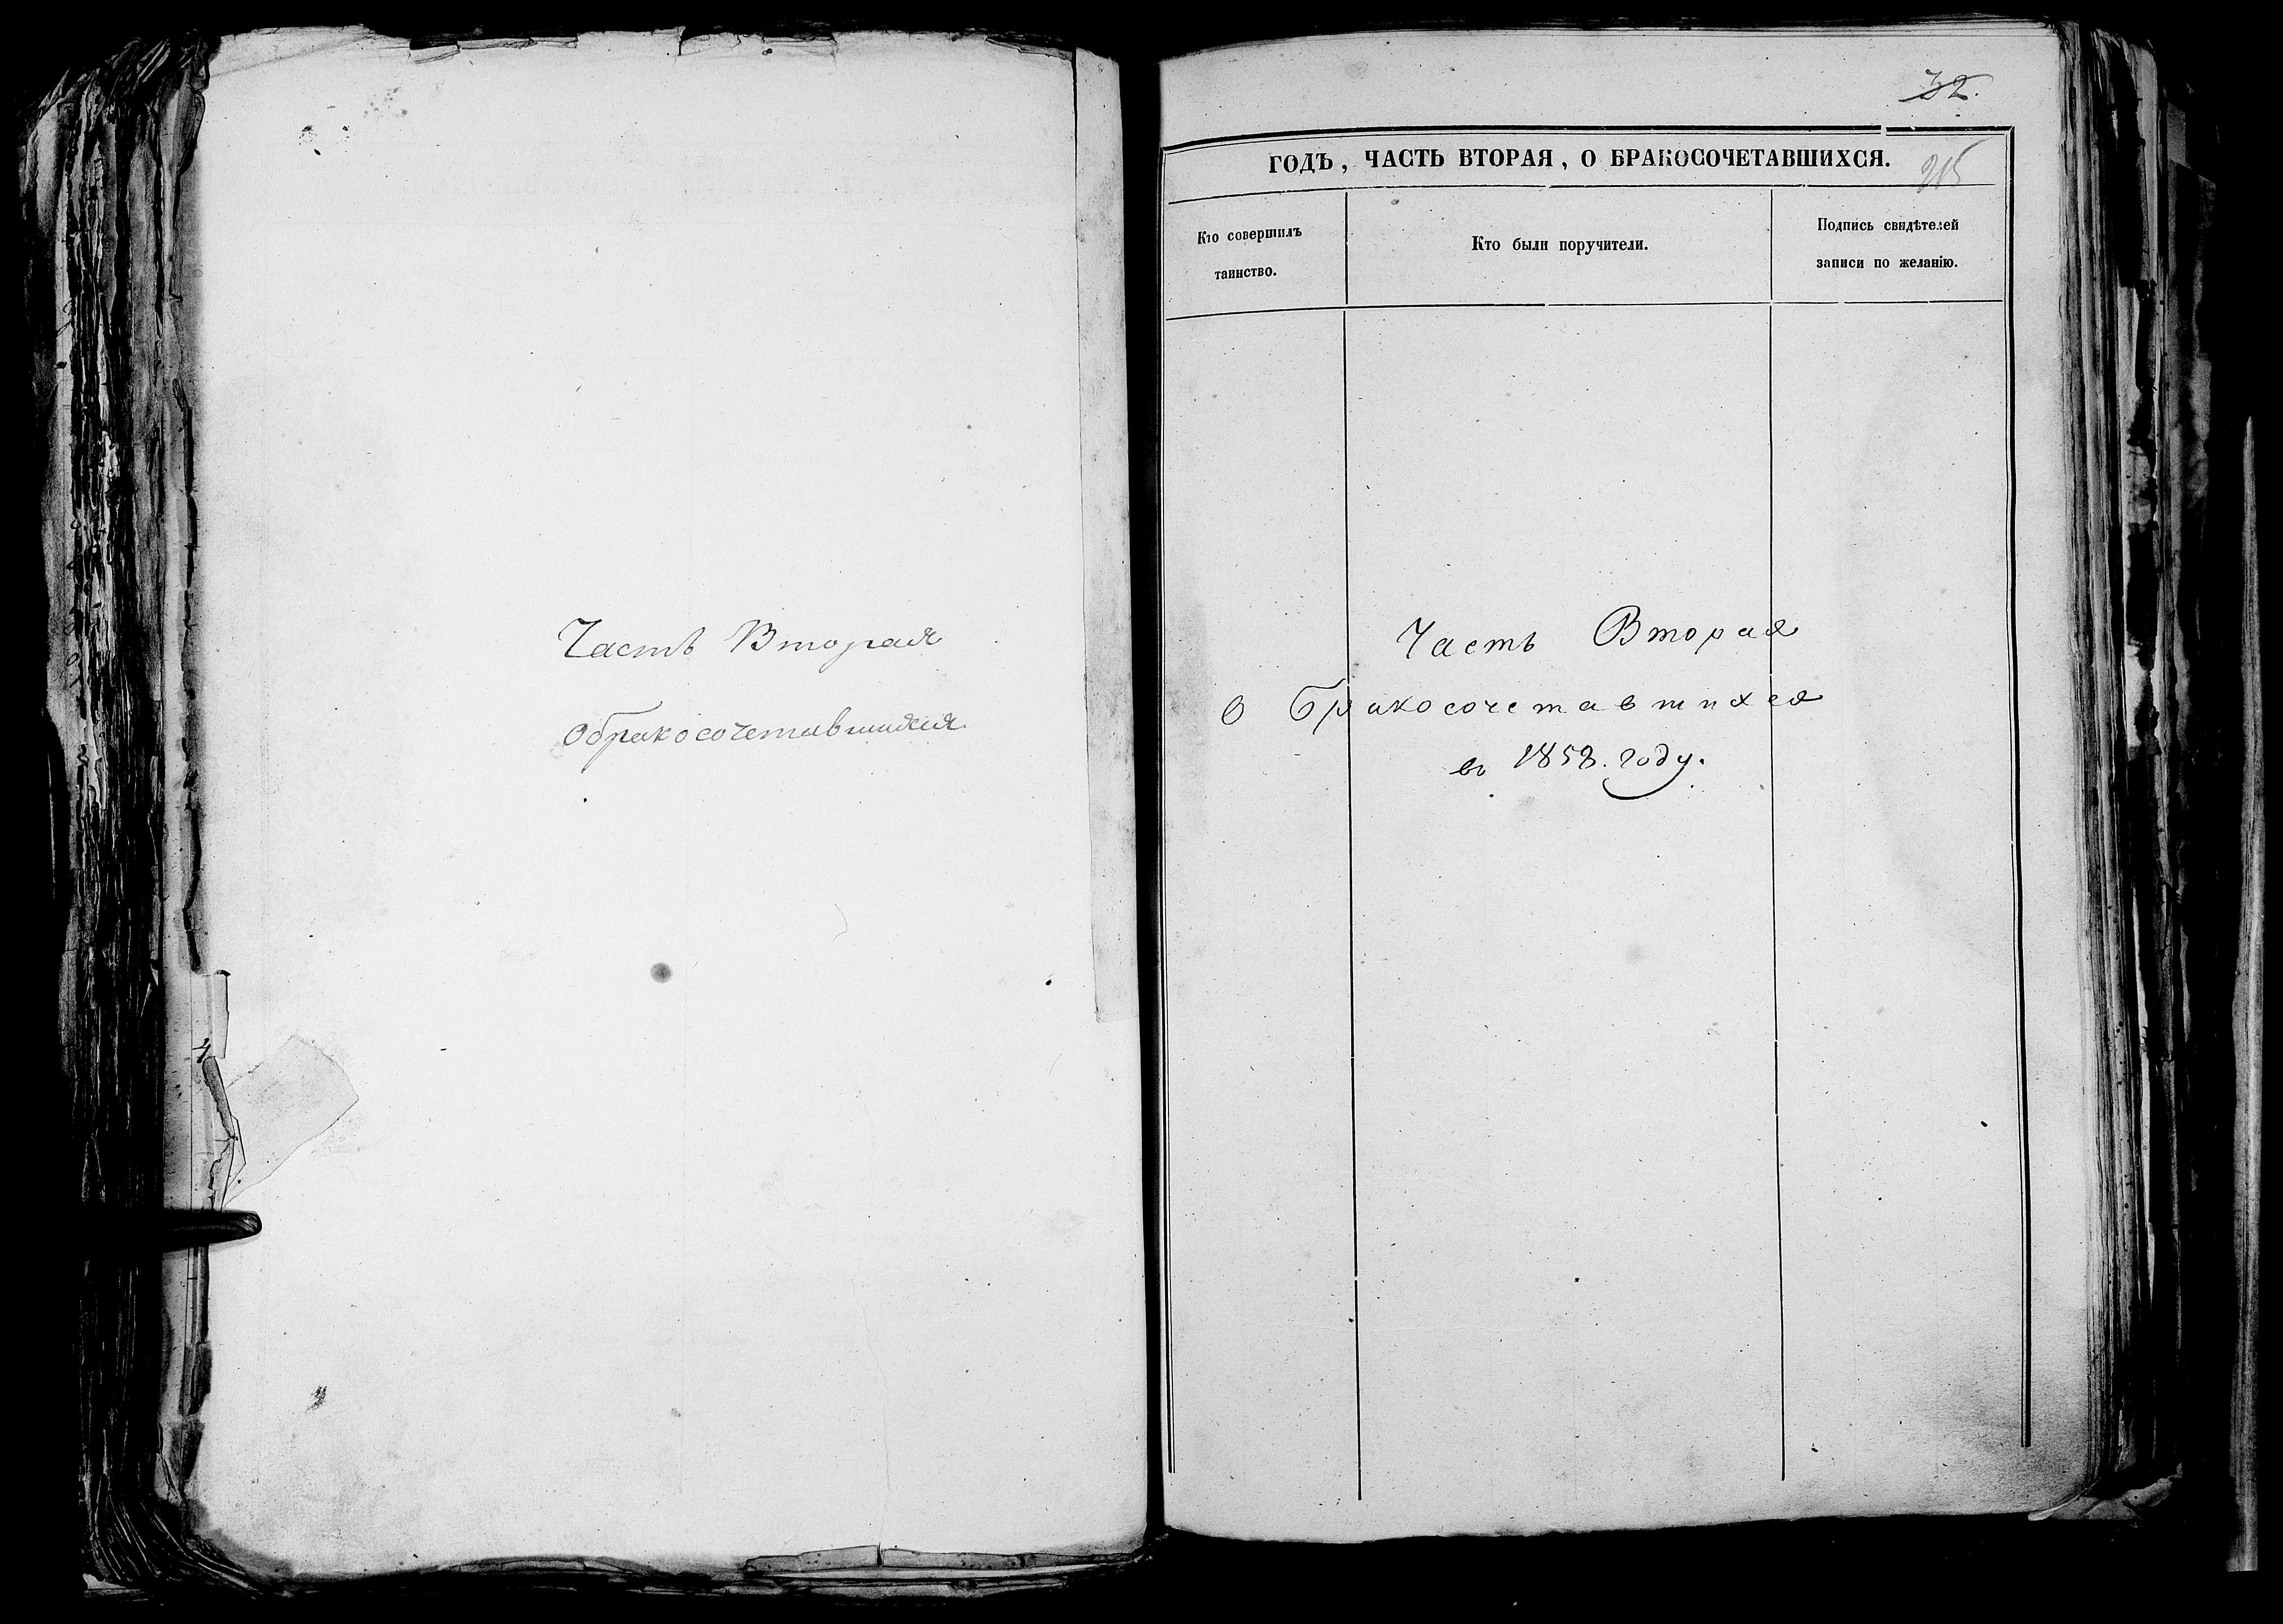 Часть Вторая
О бракосочетавшихся
32.
ГОДЪ, ЧАСТЬ ВТОРАЯ, О БРАКОСОЧЕТАВШИХСЯ.
Кто совершилъ
таинство.
Кто были поручители.
Подпись свидѣтелей
записи по желанію.
Часть Вторая
О бракосочетавшихся
въ 1858. году.